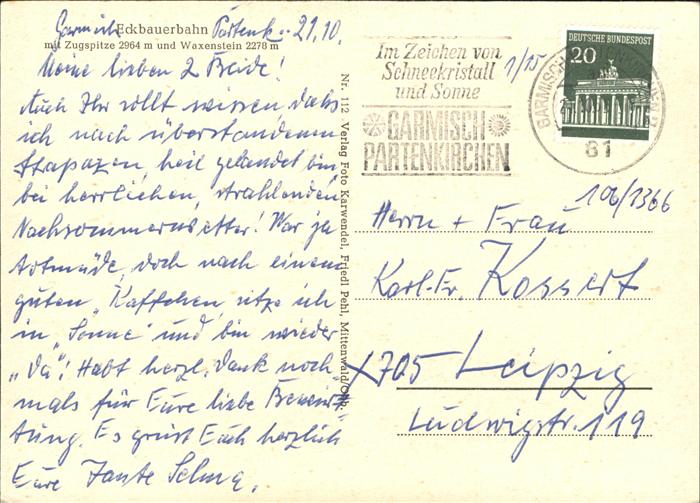 Eckbauerbahn
mit Zugspitze 2964 m und Waxenstein 2278 m
Garmisch Partenk. 21.10.
Meine lieben 2 Beide!
Auch Ihr sollt wissen, dahs
ich nach überstandenen
Stapazen, heil gelandet bin
bei herrlichen, strahlenden
Nachsommerwetter! War ja
totmüde, doch nach einem
guten „Kaffchen, sitze ich
in „Sonne" und bin wieder
„da"! Habt herzl. Dank noch-
mals für Eure liebe Bewir-
tung. Es grüst Euch herzlich
Eure Tante Selma.
Nr. 112 Verlag Foto Karwendel, Friedl Pehl, Mittenwald/Obb.
Im Zeichen von
Schneekristall
und Sonne
GARMISCH
PARTENKIRCHEN
1/15
DEUTSCHE BUNDESPOST
20
GARMISCH
81
106/1366
Herrn + Frau
Karl-Fr. Kossert
X 705 Leipzig
Ludwigstr. 119